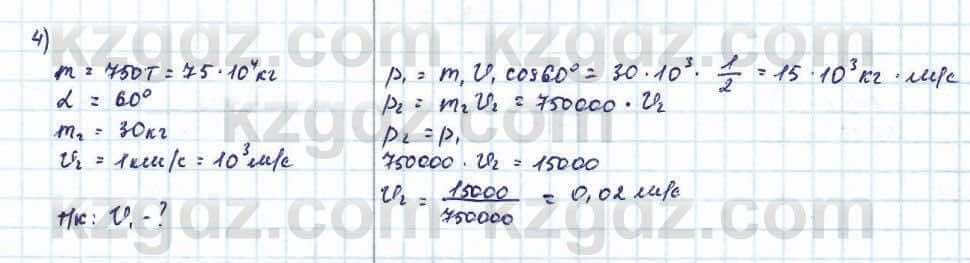 4)
m = 750т = 75 · 10⁴ кг
α = 60°
m₂ = 30кг
v₂ = 1км/с = 10³ м/с
Н/к: v₁ - ?
p₁ = m₁ v₁ cos60° = 30 · 10³ · 1/2 = 15 · 10³ кг · м/с
p₂ = m₂ v₂ = 750000 · v₂
p₂ = p₁
750000 · v₂ = 15000
v₂ = 15000/750000 = 0,02 м/с
kzgdz.com
kzgdz.com
kzgdz.com